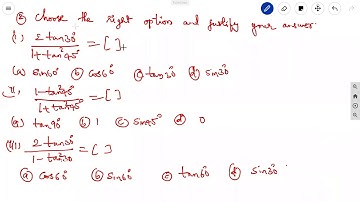 ③ choose the right option and justify your answer.
(i) 2tan30° / 1+tan²45° = [ ]
(a) sin60° (b) cos60° (c) tan30° (d) sin30°
(ii) 1-tan²45° / 1+tan²45° = [ ]
(a) tan90° (b) 1 (c) sin45° (d) 0
(iii) 2tan30° / 1-tan²30 = [ ]
(a) cos60° (b) sin60° (c) tan60° (d) sin30°